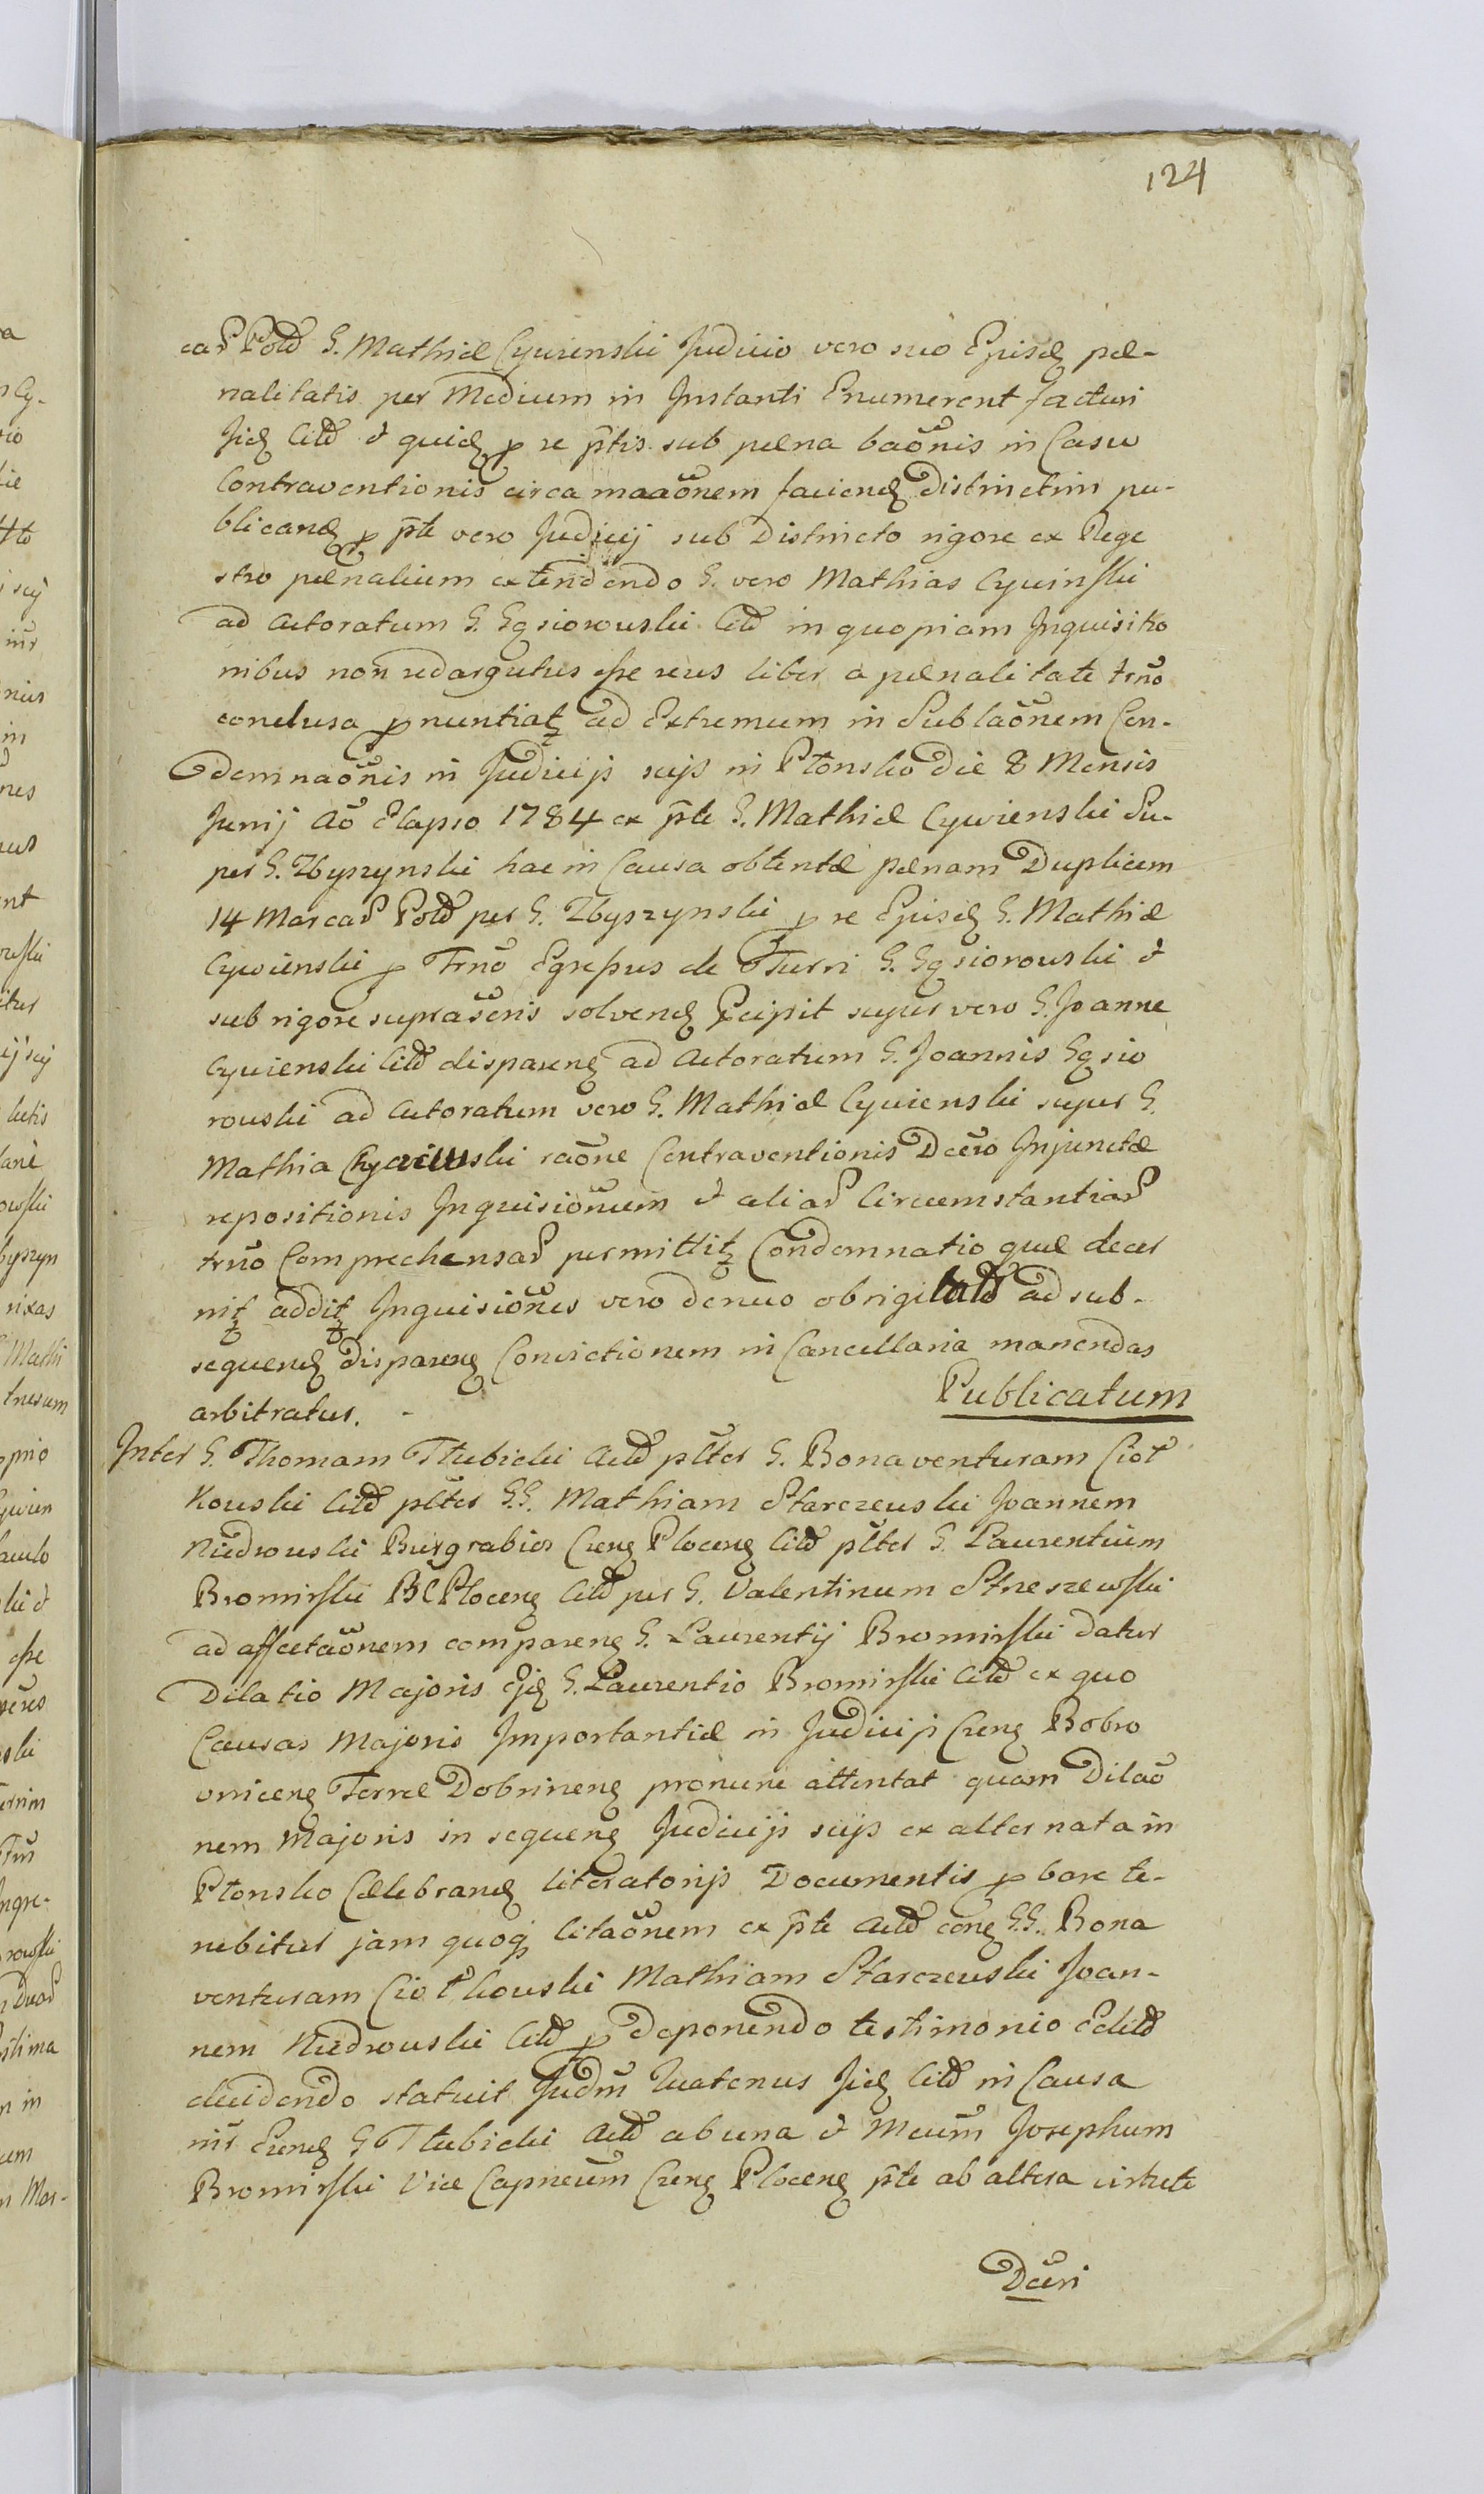 124
car Pold G. Mathiæ Cywienski Judicio vero suo Ejusd pæ-
nalitatis per Medium in Instanti Enumerent facturi
Jid Citd & quid p re ptis sub pæna baonis in Casu
Contraventionis circa maaonem faciend Distinctim pu-
blicand p pte vero Judicij sub Districto rigore ex Rege
stro pænalium extendendo G. vero Mathias Cywinski
ad Actoratum G. Gąsiorowski Citd in quopiam Inquisitio
nibus non redargutus esse reus liber a pænalitate trno
conclusa pnuntiat ad Extremum in Sublaonem Con-
demnaonis in Judicijs sujs in Płonsko die 8 Mensis
Junij Ao Elapso 1784 ex pte G. Mathiæ Cywienski Su-
per G. Zbyszynski hac in Causa obtentæ pænam Duplicem
14 Marcar Pold per G. Zbyszynski p re Ejusd G. Mathiæ
Cywienski p Trno Egressus de Turri G. Gąsiorowski &
sub rigore suprascris solvend Pcipit super vero G. Joanne
Cywienski Citd disparend ad Actoratum G. Joannis Gąsio
rowski ad Actoratum vero G. Mathiæ Cywienski super G.
Mathia Cywienski raone Contraventionis Dcero Injunctæ
repositionis Inquisionum & aliar Circumstantiar
trno Comprechensar permittit Condemnatio quæ decer
nit addit Inquisiones vero denuo obrigilatd ad sub-
sequend disparend Convictionem in Cancellaria manendas
arbitratur. -
Publicatum
Inter G. Thomam Tłubicki Actd plter G. Bonaventuram Cioł
kowski Citd plter G.G. Mathiam Starczewski Joannem
Niedrowski Burgrabios Creng Ploceng Citd plter G. Laurentium
Bromirski BC Ploceng Citd per G. Valentinum Strzeszewski
ad affectaonem compareng G. Laurentij Bromirski datur
Dilatio Majoris Ejd G. Laurentio Bromirski Citd ex quo
Causas Majoris Importantiæ in Judicijs Creng Bobro
vniceng Terræ Dobrineng pronunc attentat quam Dilao
nem Majoris in sequeng Judicijs sujs ex alternata in
Płonsko Cælebrand literatorijs Documentis pbare te-
nebitur jam quoq citaonem ex pte Actd cong G.G. Bona
venturam Ciołkowski Mathiam Starczewski Joan-
nem Niedrowski Citd p deponendo testimonio Editd
elidendo statuit Judm Quatenus Jid Citd in Causa
nir Eund G Tłubicki Actd ab una & Mcum Josephum
Bromirski Vice Capneum Creng Ploceng pte ab altera virtute
Dceri